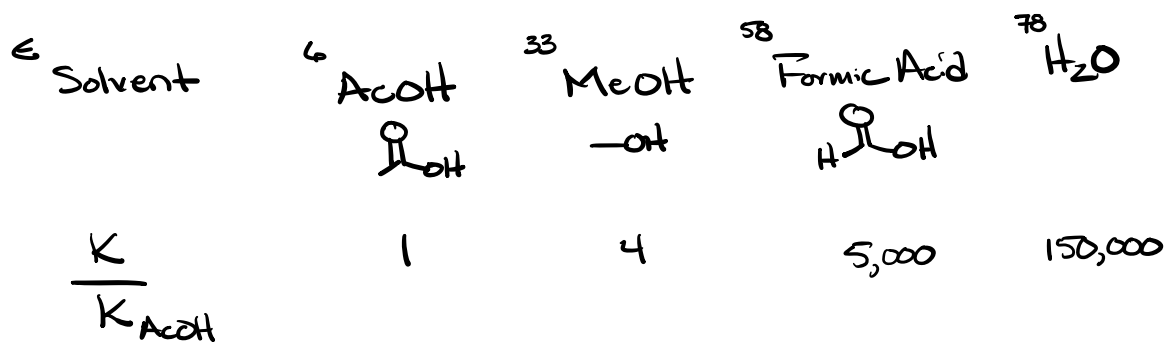 ε Solvent 6 AcOH 33 MeOH 58 Formic Acid 78 H₂O
O OH —OH H O OH
K 1 4 5,000 150,000
K AcOH